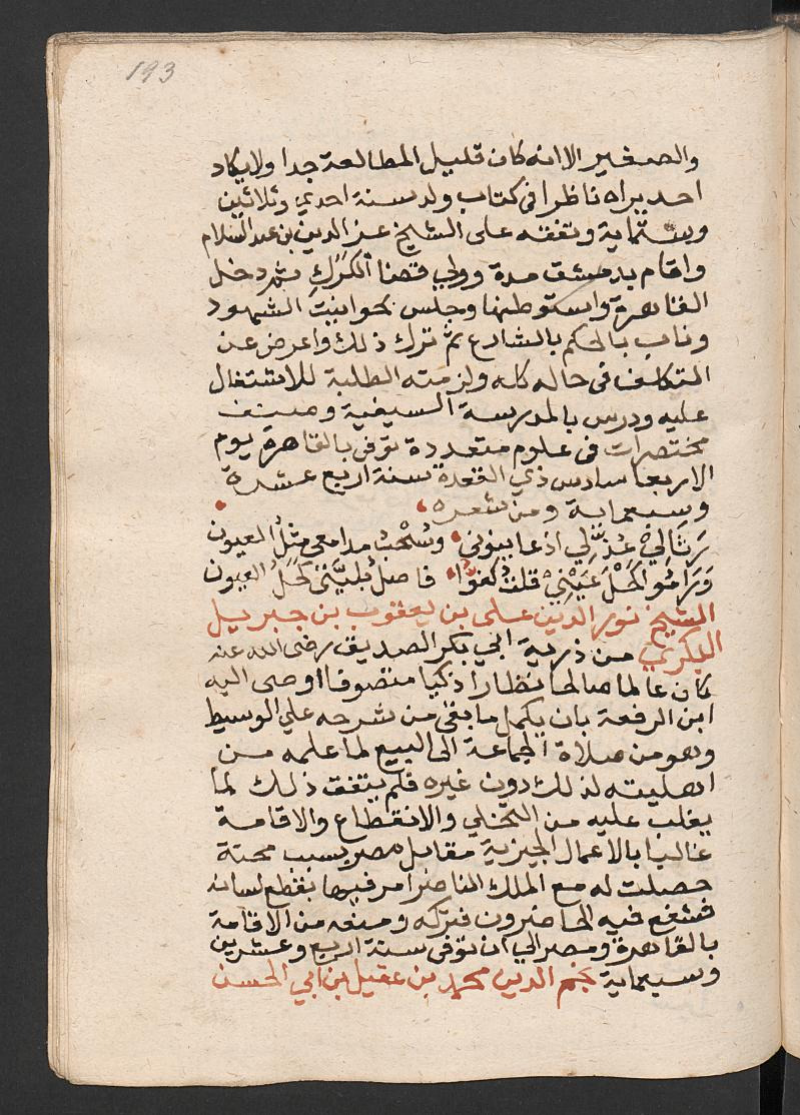 193
والصغير الا انه كان قليل المطالعة جدا ولا يكاد
احد يراه ناظرا فى كتاب ولد سنة احدي وثلاثين
وستماية وتفقه على الشيخ عز الدين بن عبد السلام
واقام بدمشق مدة وولي قضا الكَرَكِ ثم دخل
القاهرة واستوطنها وجلس بحوانيت الشهود
وناب بالحكم بالشارع ثم ترك ذلك واعرض عن
التكلف فى حاله كله ولزمته الطلبة للاشتغال
عليه ودرس بالمدرسة السيفية وصنف
مختصرات فى علوم متعددة توفى بالقاهرة يوم
الاربعا سادس ذي القعدة سنة اربع عشرة
وسبعماية ومن شعره
رَثَالِيْ عُذَّلِي اذ عاينونى وسُحْبُ مدامعى مثلُ العيون
وَرَامُو الكُحْلَ عَيْنِيْ قلتُ كفوُّا فاصلُ بَليَّتى كُحْلُ العيون
الشيخ نور الدين على بن يعقوب بن جبريل
البكري من ذرية ابي بكر الصديق رضى الله عنه
كان عالما صالحا نظارا ذكيا متصوفا اوصى اليه
ابن الرفعة بان يكمل ما بقى من شرحه علي الوسيط
وهو من صلاة الجماعة الى البيع لما علمه من
اهليته لذلك دون غيره فلم يتفق ذلك لما
يغلب عليه من التخلي والانقطاع والاقامة
غالبا بالاعمال الجيزية مقابل مصر بسبب محنة
حصلت له مع الملك الناصر امر فيها بقطع لسانه
فشفع فيه الحاضرون فتركه ومنعه من الاقامة
بالقاهرة ومصر الي ان توفى سنة اربع وعشرين
وسبعماية نجم الدين محمد بن عقيل بن ابي الحسن